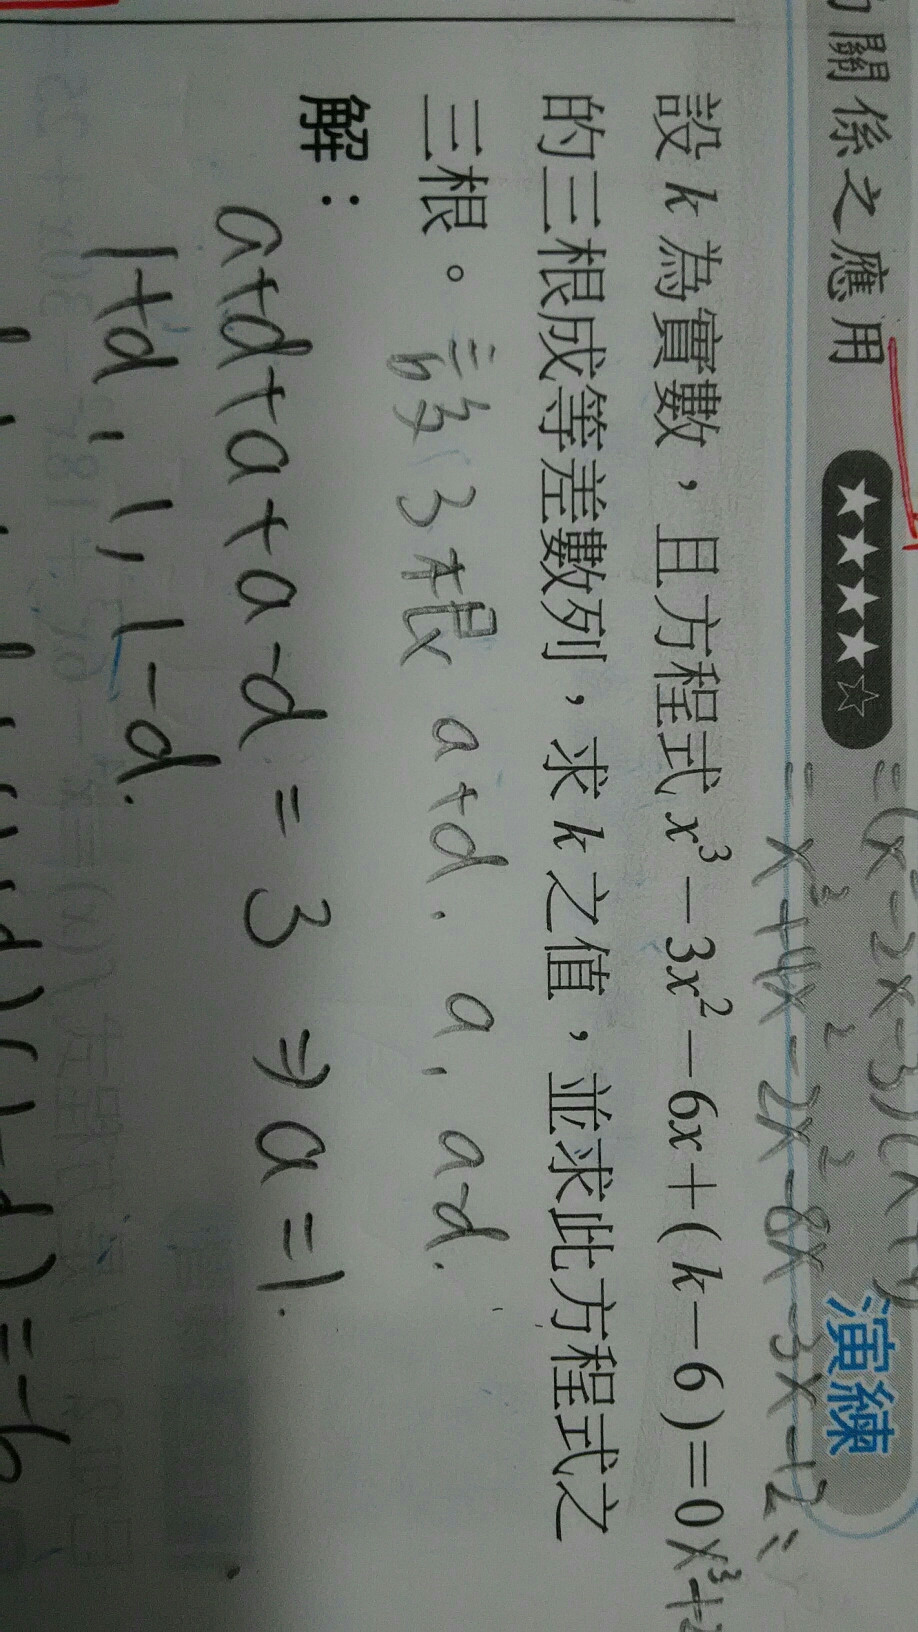 關係之應用 ★★★★☆ 演練
= x³+4x²-2x²-8x-3x-12
設 k 為實數，且方程式 x³－3x²－6x＋(k－6)＝0
的三根成等差數列，求 k 之值，並求此方程式之
三根。 設3根 a+d, a, a-d.
解：
a+d+a+a-d = 3 ⇒ a=1.
1+d, 1, 1-d.